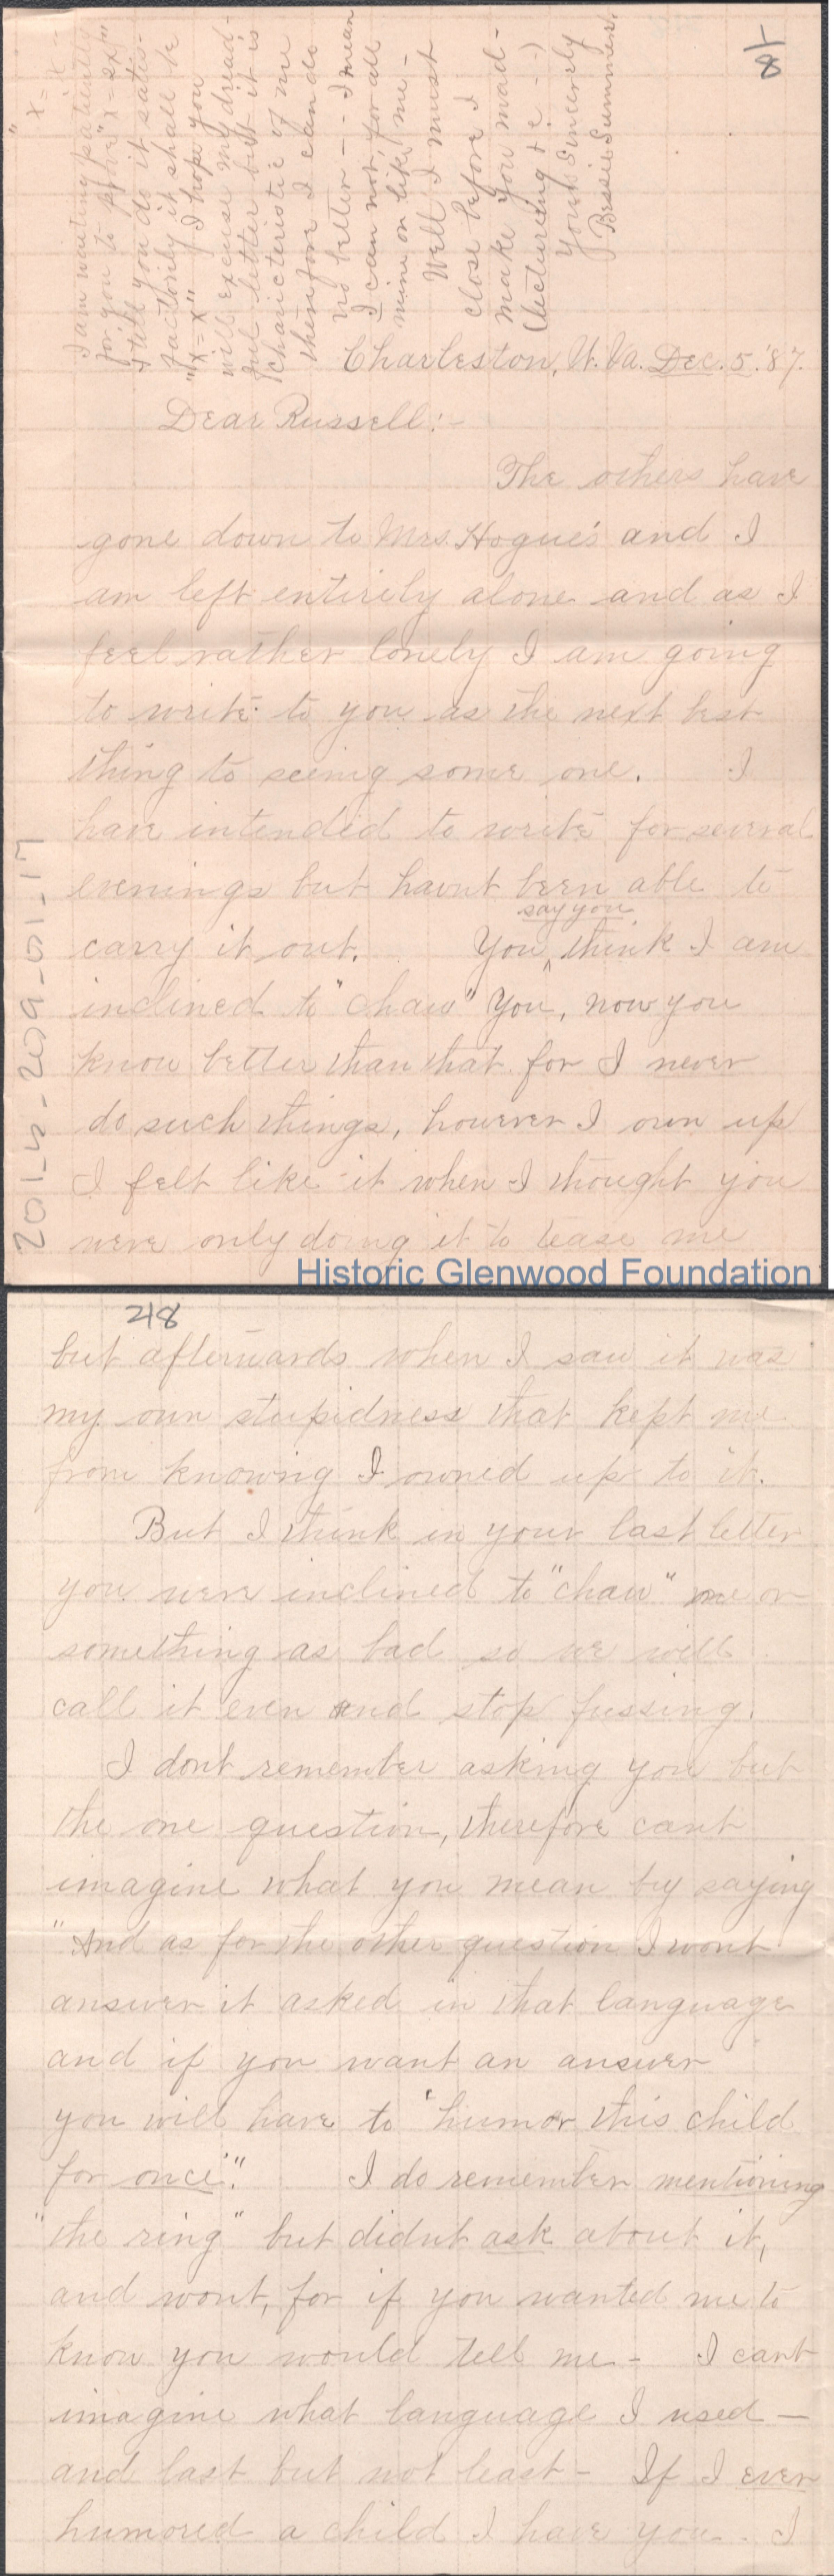 1/8
"x = x"
I am waiting patiently
for you to prove "x = 2x"
till you do it satis-
factorily it shall be
"x = x" I hope you
will excuse my dread-
ful letter but it is
charicteristic of me
therefore I can do
no better -- I mean
I can not, for all
mine on like me -
Well I must
close before I
make you mad -
(lecturing &c --)
Yours Sincerely
Bessie Summers.
Charleston, W. Va. Dec. 5. '87.
Dear Russell:-
The others have
gone down to Mrs. Hogue's and I
am left entirely alone and as I
feel rather lonely I am going
to write to you as the next best
thing to seeing some one. I
have intended to write for several
evenings but havnt been able to
say you
carry it out. You ^ think I am
inclined to "chaw" you, now you
know better than that for I never
do such things, however I own up
I felt like it when I thought you
were only doing it to tease me
2015-209-01-17
Historic Glenwood Foundation
2/8
but afterwards when I saw it was
my own stupidness that kept me
from knowing I owned up to it.
But I think in your last letter
you were inclined to "chaw" me or
something as bad so we will
call it even and stop fussing.
I dont remember asking you but
the one question, therefore cant
imagine what you mean by saying
"And as for the other question I wont
answer it asked in that language
and if you want an answer
you will have to 'humor this child
for once'." I do remember mentioning
"the ring" but didnt ask about it,
and wont, for if you wanted me to
know you would tell me - I cant
imagine what language I used -
and last but not least - If I ever
humored a child I have you. I